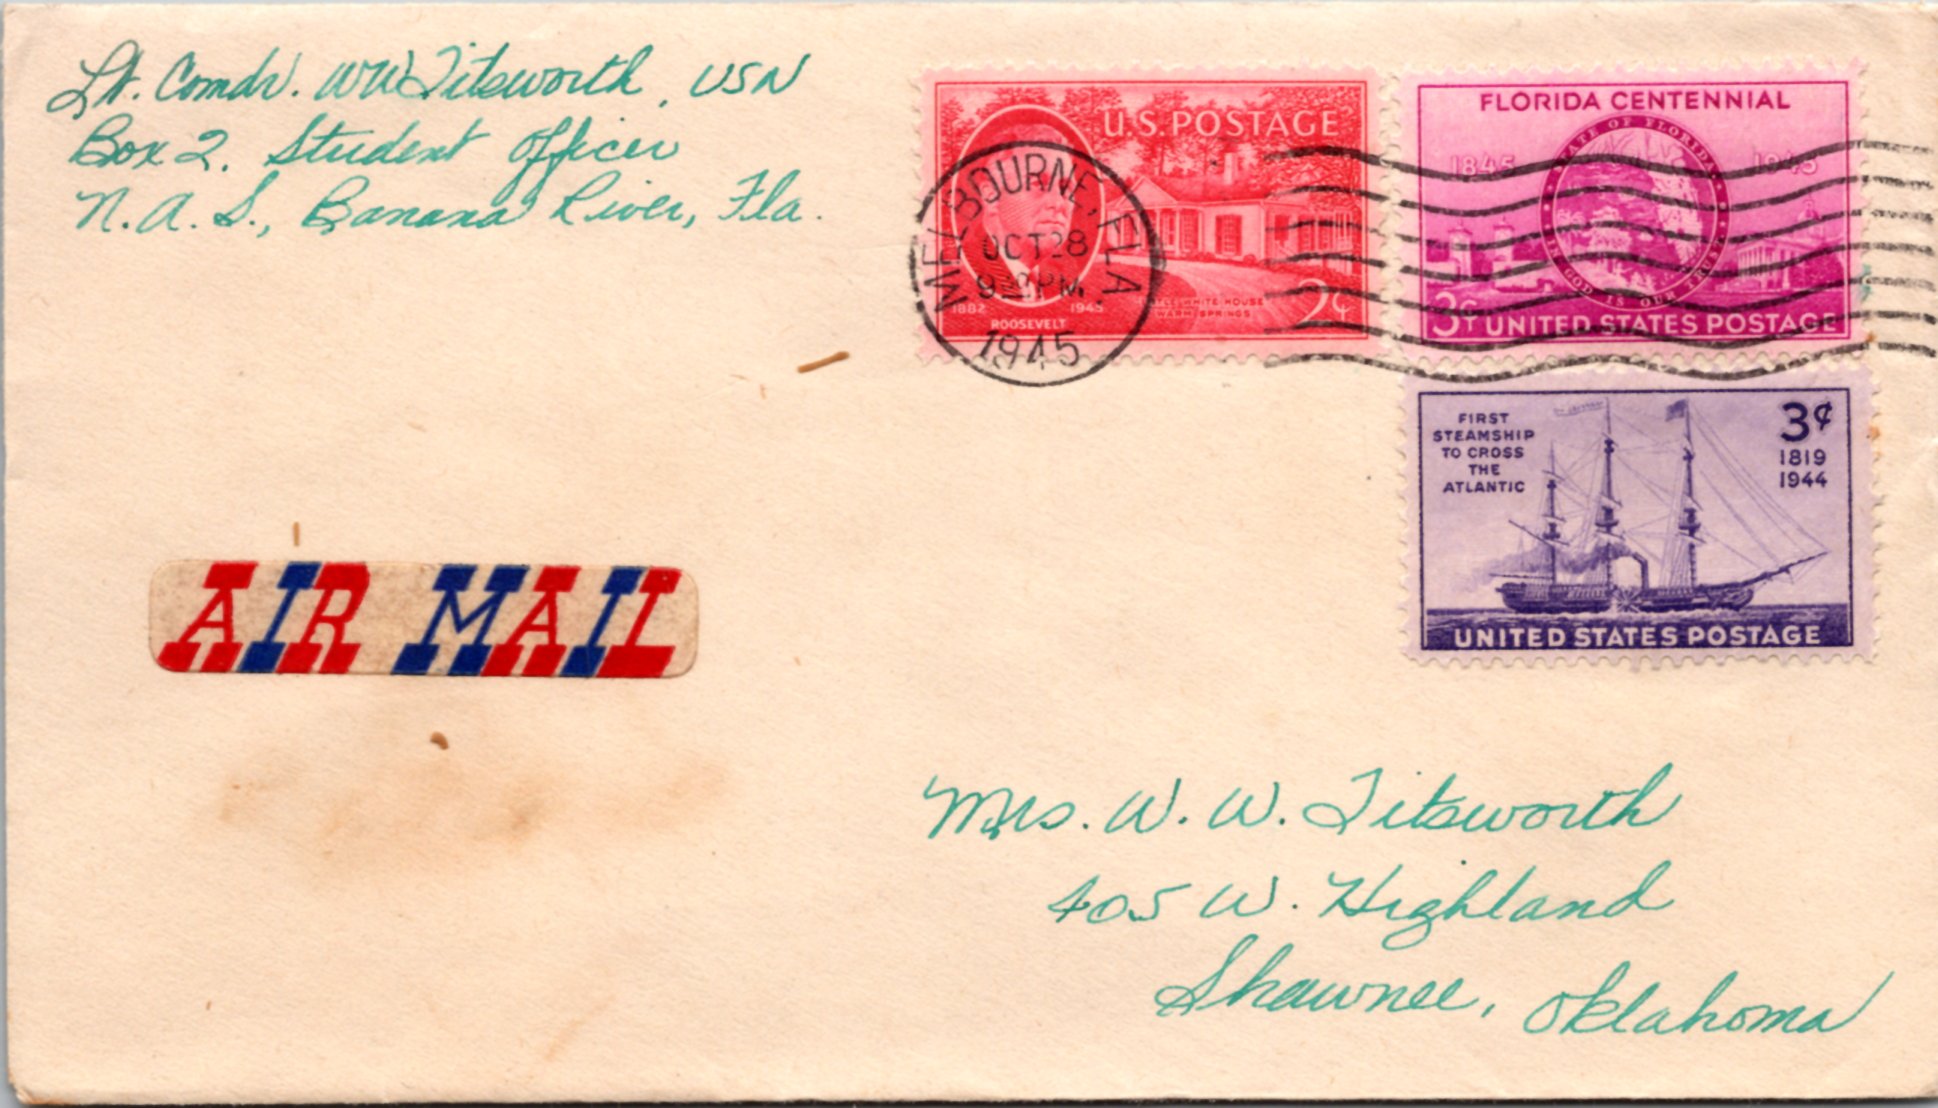 Lt. Comdr. WW Titsworth, USN
Box 2, Student Officer
N.A.S., Banana River, Fla.
U.S. POSTAGE
1882 1945
ROOSEVELT
LITTLE WHITE HOUSE
WARM SPRINGS
2¢
MELBOURNE, FLA
OCT 28
9 PM
1945
FLORIDA CENTENNIAL
1845 1945
STATE OF FLORIDA
IN GOD IS OUR TRUST
3¢ UNITED STATES POSTAGE
FIRST
STEAMSHIP
TO CROSS
THE
ATLANTIC
3¢
1819
1944
UNITED STATES POSTAGE
AIR MAIL
Mrs. W. W. Titsworth
405 W. Highland
Shawnee, Oklahoma